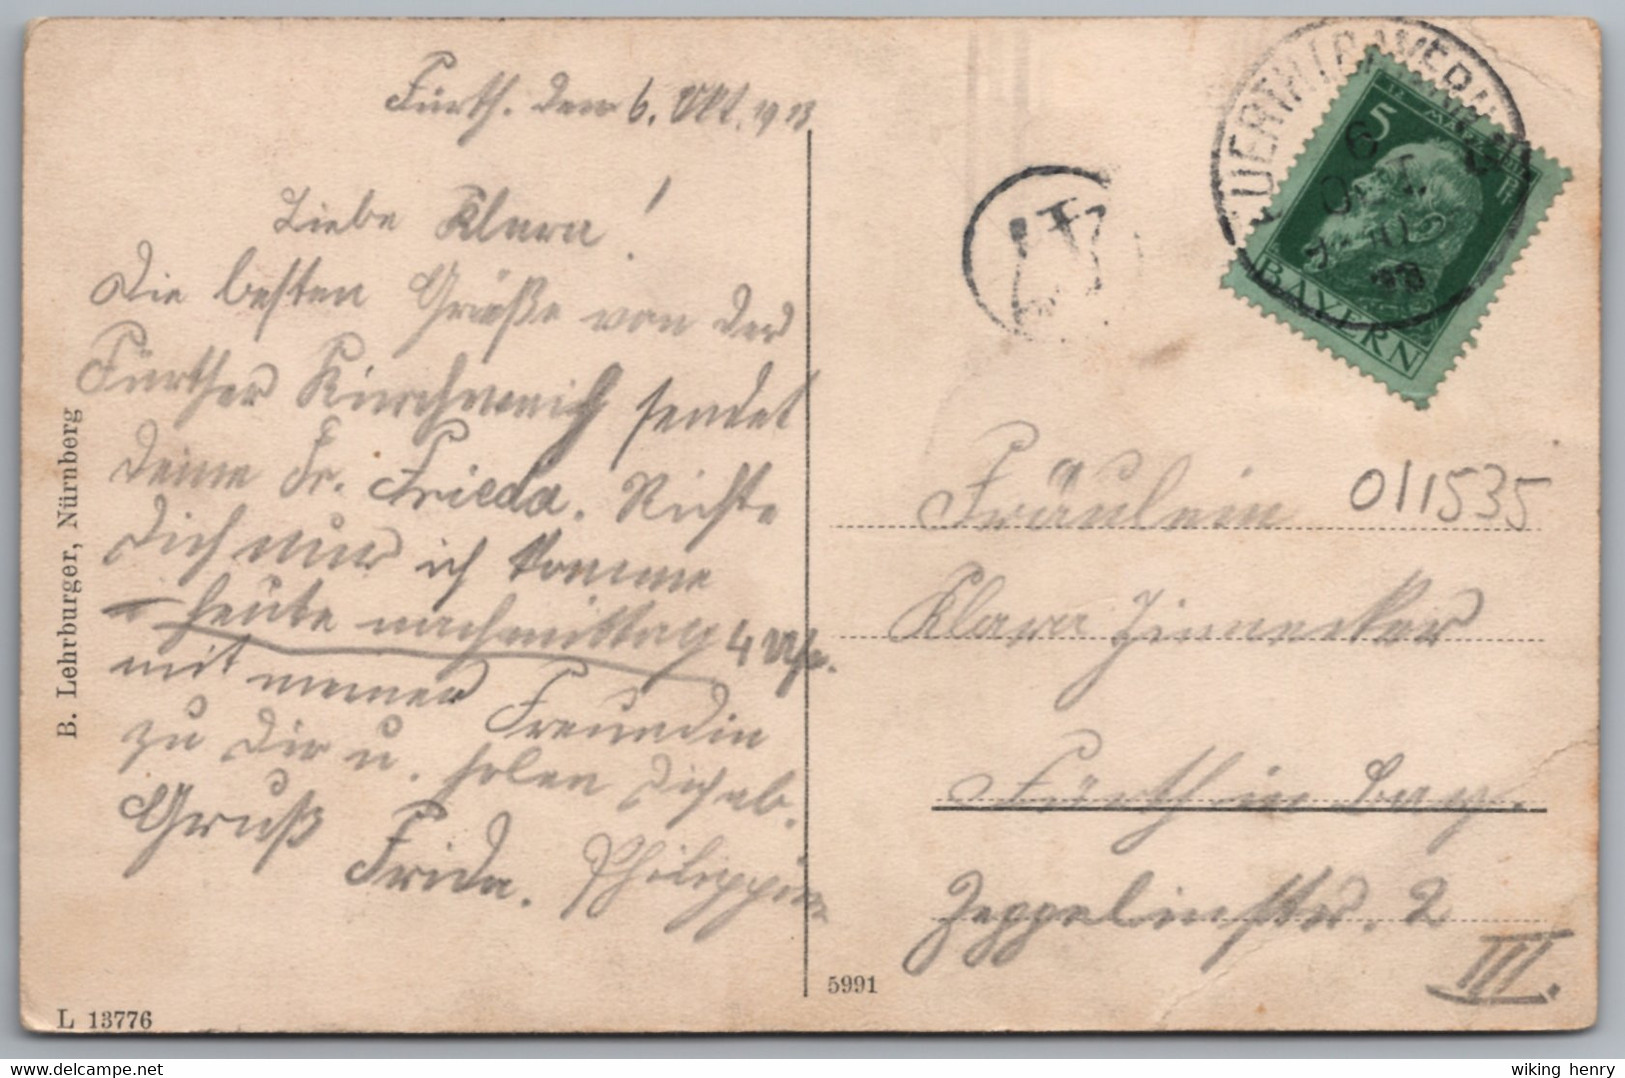 Fürth. den 6. Okt. 1913
Liebe Klara!
Die besten Grüße von der
Fürther Kirchweih sendet
Deine Fr. Frieda. Richte
Dich nur ich komme
heute nachmittag 4 Uhr.
mit meiner Freundin
zu Dir u. holen Dich ab.
Gruß
Frida. Philippine
B. Lehrburger, Nürnberg
L 13776
5991
6
OKT.
5
BAYERN
Fräulein 011535
Klara Zinnecker
Fürth in Bay.
Zeppelinstr. 2
III.
wiking henry